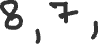 8, 7,